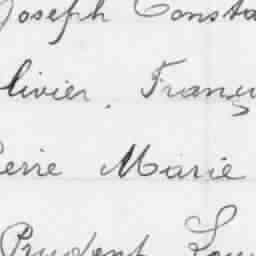 Joseph Consta
livier, Franç
erre Marie
Prudent Lou